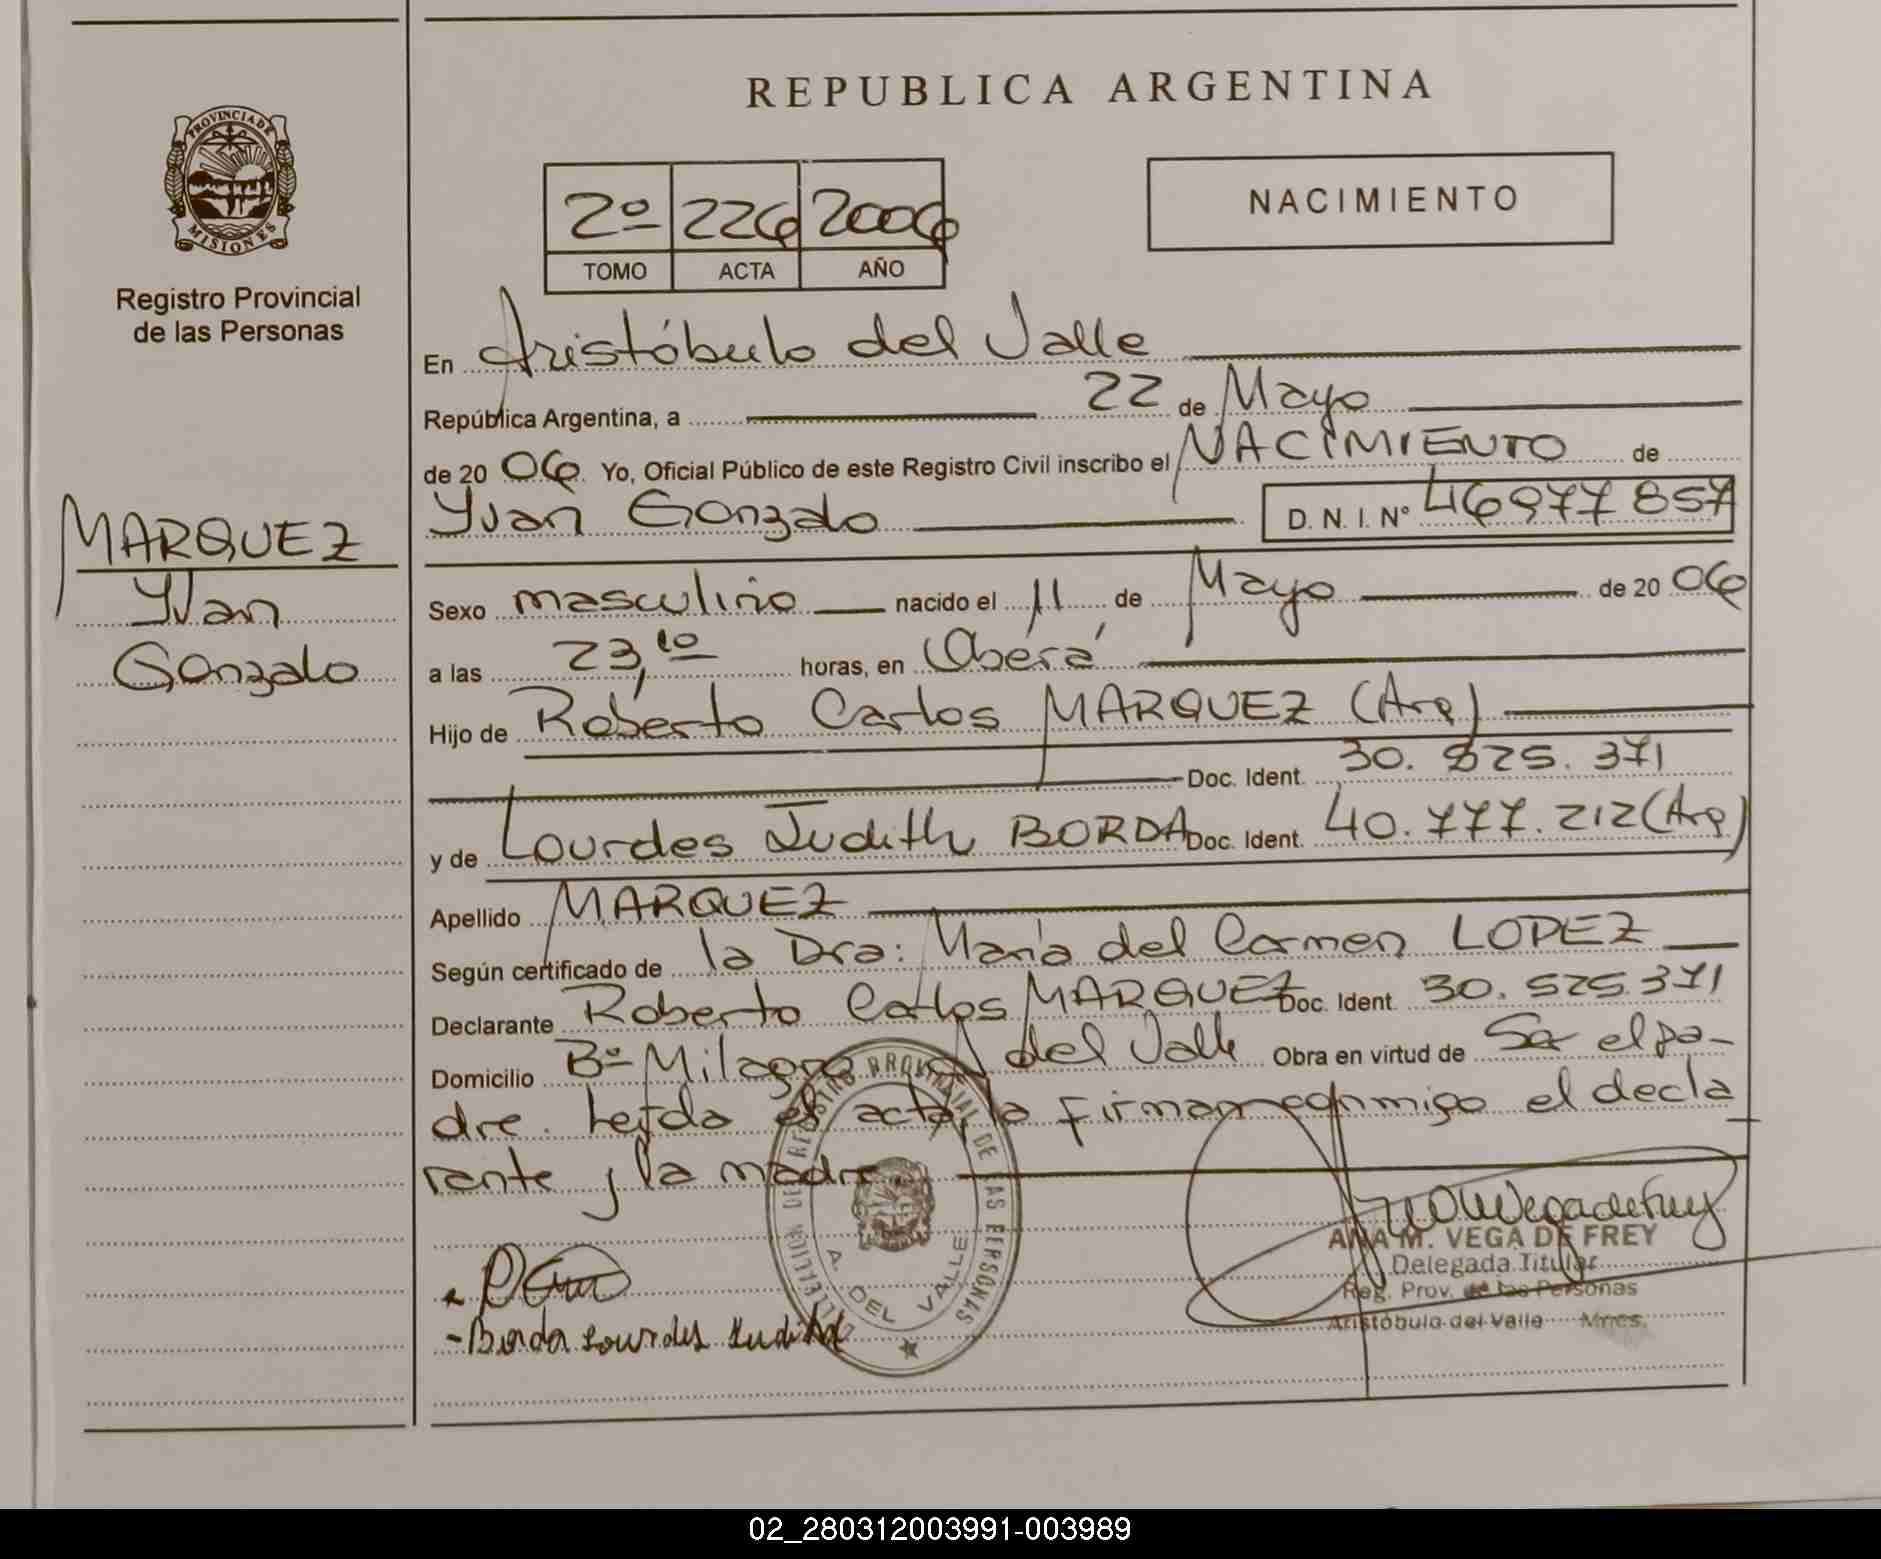 REPUBLICA ARGENTINA
PROVINCIA DE MISIONES
Registro Provincial
de las Personas
2º 226 2006
TOMO ACTA AÑO
NACIMIENTO
En Aristóbulo del Valle
República Argentina, a 22 de Mayo
de 2006 Yo, Oficial Público de este Registro Civil inscribo el NACIMIENTO de
Yvan Gonzalo D. N. I. Nº 46977857
MARQUEZ
Yvan
Gonzalo
Sexo masculino nacido el 11 de Mayo de 2006
a las 23,10 horas, en Oberá
Hijo de Roberto Carlos MARQUEZ (Arg)
Doc. Ident. 30.525.371
y de Lourdes Judith BORDA Doc. Ident. 40.777.212 (Arg)
Apellido MARQUEZ
Según certificado de la Dra: María del Carmen LOPEZ
Declarante Roberto Carlos MARQUEZ Doc. Ident. 30.525.371
Domicilio Bº Milagro del Valle Obra en virtud de Ser el pa-
dre. Leída el acta, la firman conmigo el decla
rante y la madre.
REGISTRO PROVINCIAL DE LAS PERSONAS
A. DEL VALLE
Borda Lourdes Judith
ANA M. VEGA DE FREY
Delegada Titular
Reg. Prov. de las Personas
Aristóbulo del Valle Mnes.
02_280312003991-003989